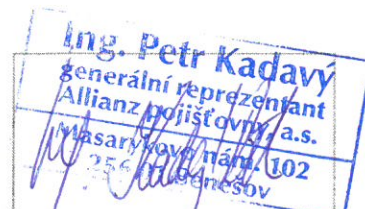 Ing. Petr Kadavý
generální reprezentant
Allianz pojišťovny, a.s.
Masarykovo nám. 102
256 Benešov